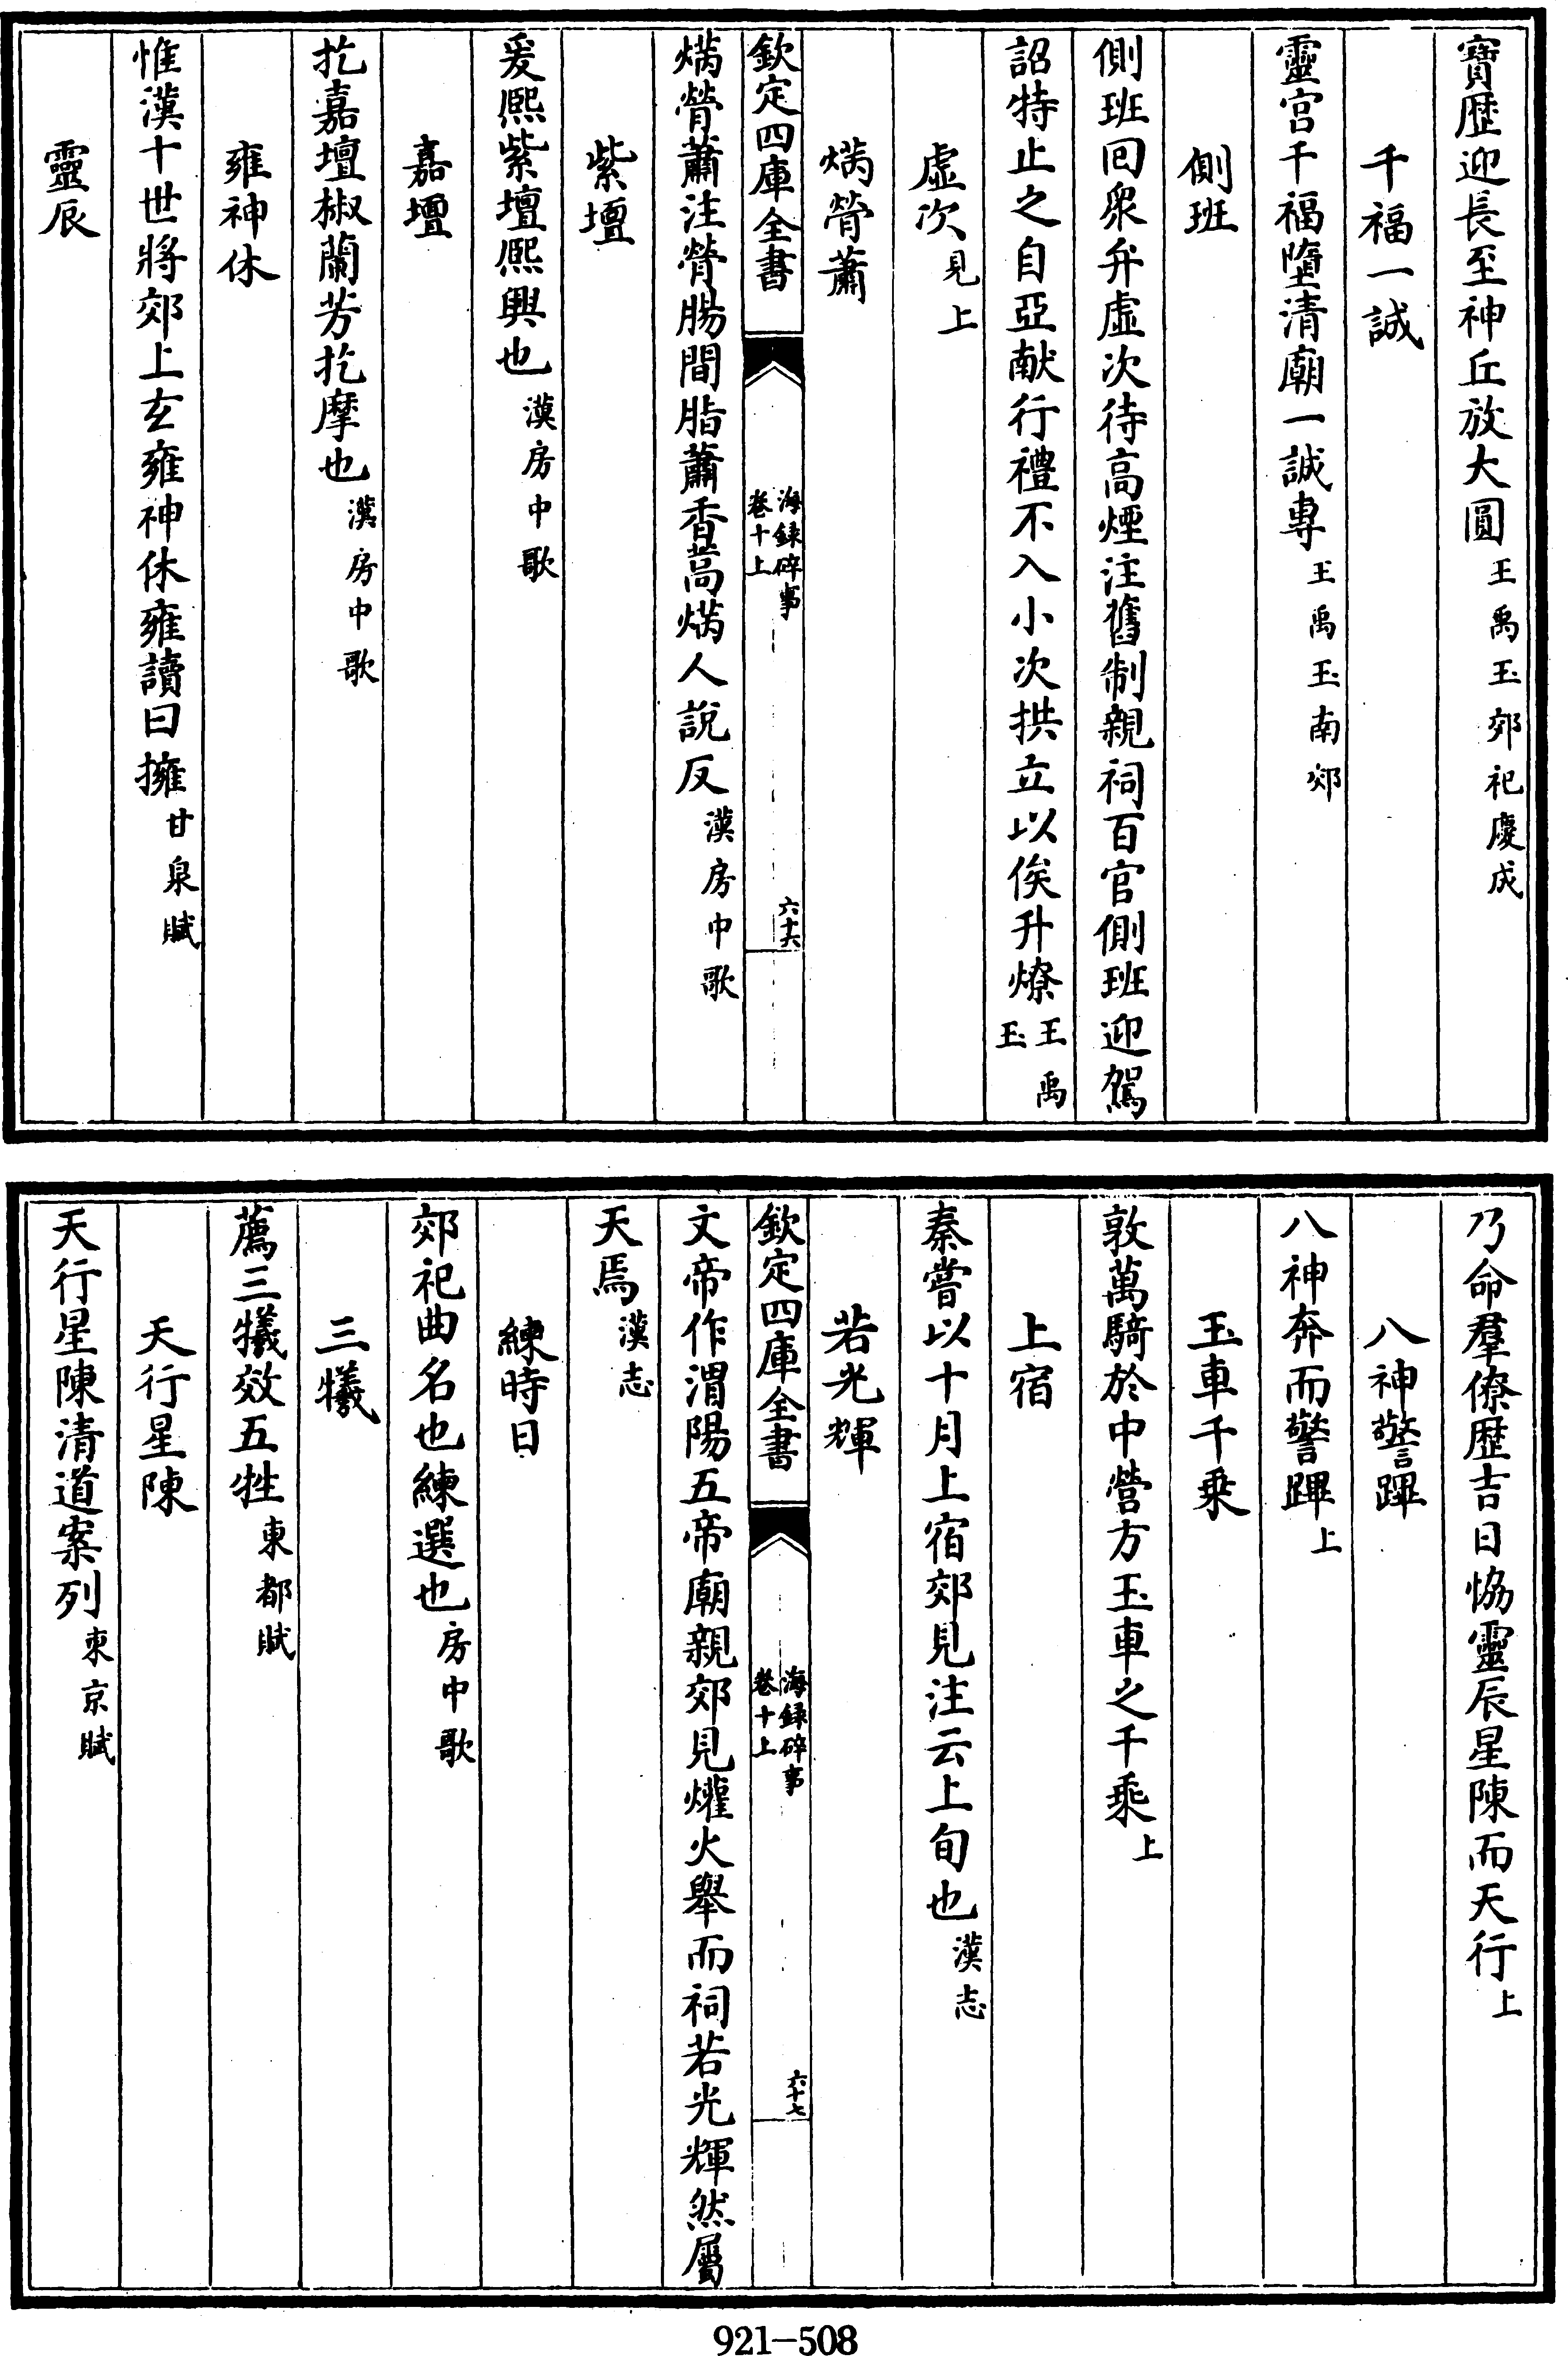 寶歴迎長至神丘放大圓王禹玉郊祀慶成
千福一誠
靈宫千福墮清廟一誠專王禹玉南郊
側班
側班囘衆弁虚次待高煙注舊制親祠百官側班迎駕
詔特止之自亞献行禮不入小次拱立以俟升燎王禹玉
虚次見上
焫膋蕭
欽定四庫全書
海録碎事
卷十上
六十六
焫膋蕭注膋腸間脂蕭香蒿焫人說反漢房中歌
紫壇
爰熙紫壇熙興也漢房中歌
嘉壇
扢嘉壇椒蘭芳扢摩也漢房中歌
雍神休
惟漢十世將郊上玄雍神休雍讀曰擁甘泉賦
靈辰
乃命羣僚歴吉日恊靈辰星陳而天行上
八神警蹕
八神奔而警蹕上
玉車千乗
敦萬騎於中營方玉車之千乘上
上宿
秦嘗以十月上宿郊見注云上旬也漢志
若光輝
欽定四庫全書
海録碎事
卷十上
六十七
文帝作渭陽五帝廟親郊見爟火舉而祠若光輝然屬
天焉漢志
練時日
郊祀曲名也練選也房中歌
三犧
薦三犧效五牲東都賦
天行星陳
天行星陳清道案列東京賦
921-508